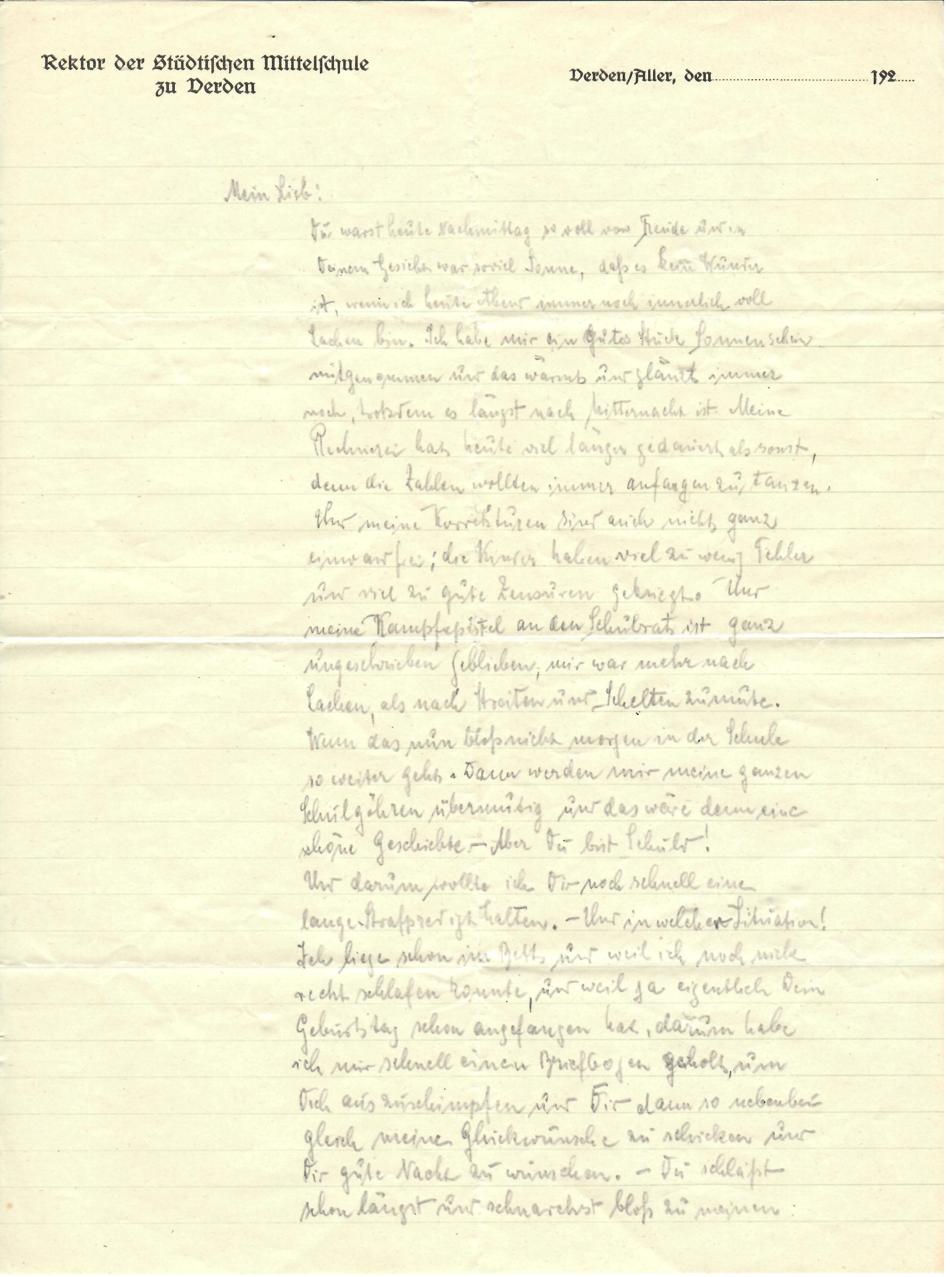 Rektor der Städtischen Mittelschule
zu Verden
Verden/Aller, den 192
Mein Lieb!
Du warst heute Nachmittag so voll von Freude und in
Deinem Gesicht war soviel Sonne, daß es kein Wunder
ist, wenn ich heute Abend immer noch innerlich voll
Lachen bin. Ich habe mir ein gutes Stück Sonnenschein
mitgenommen und das wärmt und glänzt immer
noch, trotzdem es längst nach Mitternacht ist. Meine
Rechnerei hat heute viel länger gedauert als sonst,
denn die Zahlen wollten immer anfangen zu tanzen.
Und meine Korrekturen sind auch nicht ganz
einwandfrei; die Kinder haben viel zu wenig Fehler
und viel zu gute Zensuren gekriegt. Und
meine Kampfepistel an den Schulrat ist ganz
ungeschrieben geblieben; mir war mehr nach
Lachen, als nach Streiten und Schelten zumute.
Wenn das nun bloß nicht morgen in der Schule
so weiter geht. Dann werden mir meine ganzen
Schulgöhren übermütig und das wäre denn eine
schöne Geschichte. – Aber Du bist Schuld!
Und darum wollte ich Dir noch schnell eine
lange Strafpredigt halten. – Und in welcher Situation!
Ich liege schon im Bett, und weil ich noch nicht
recht schlafen konnte, und weil ja eigentlich Dein
Geburtstag schon angefangen hat, darum habe
ich mir schnell einen Briefbogen geholt, um
Dich auszuschimpfen und Dir dann so nebenbei
gleich meine Glückwünsche zu schicken und
Dir gute Nacht zu wünschen. – Du schläfst
schon längst und schnarchst bloß zu meinen